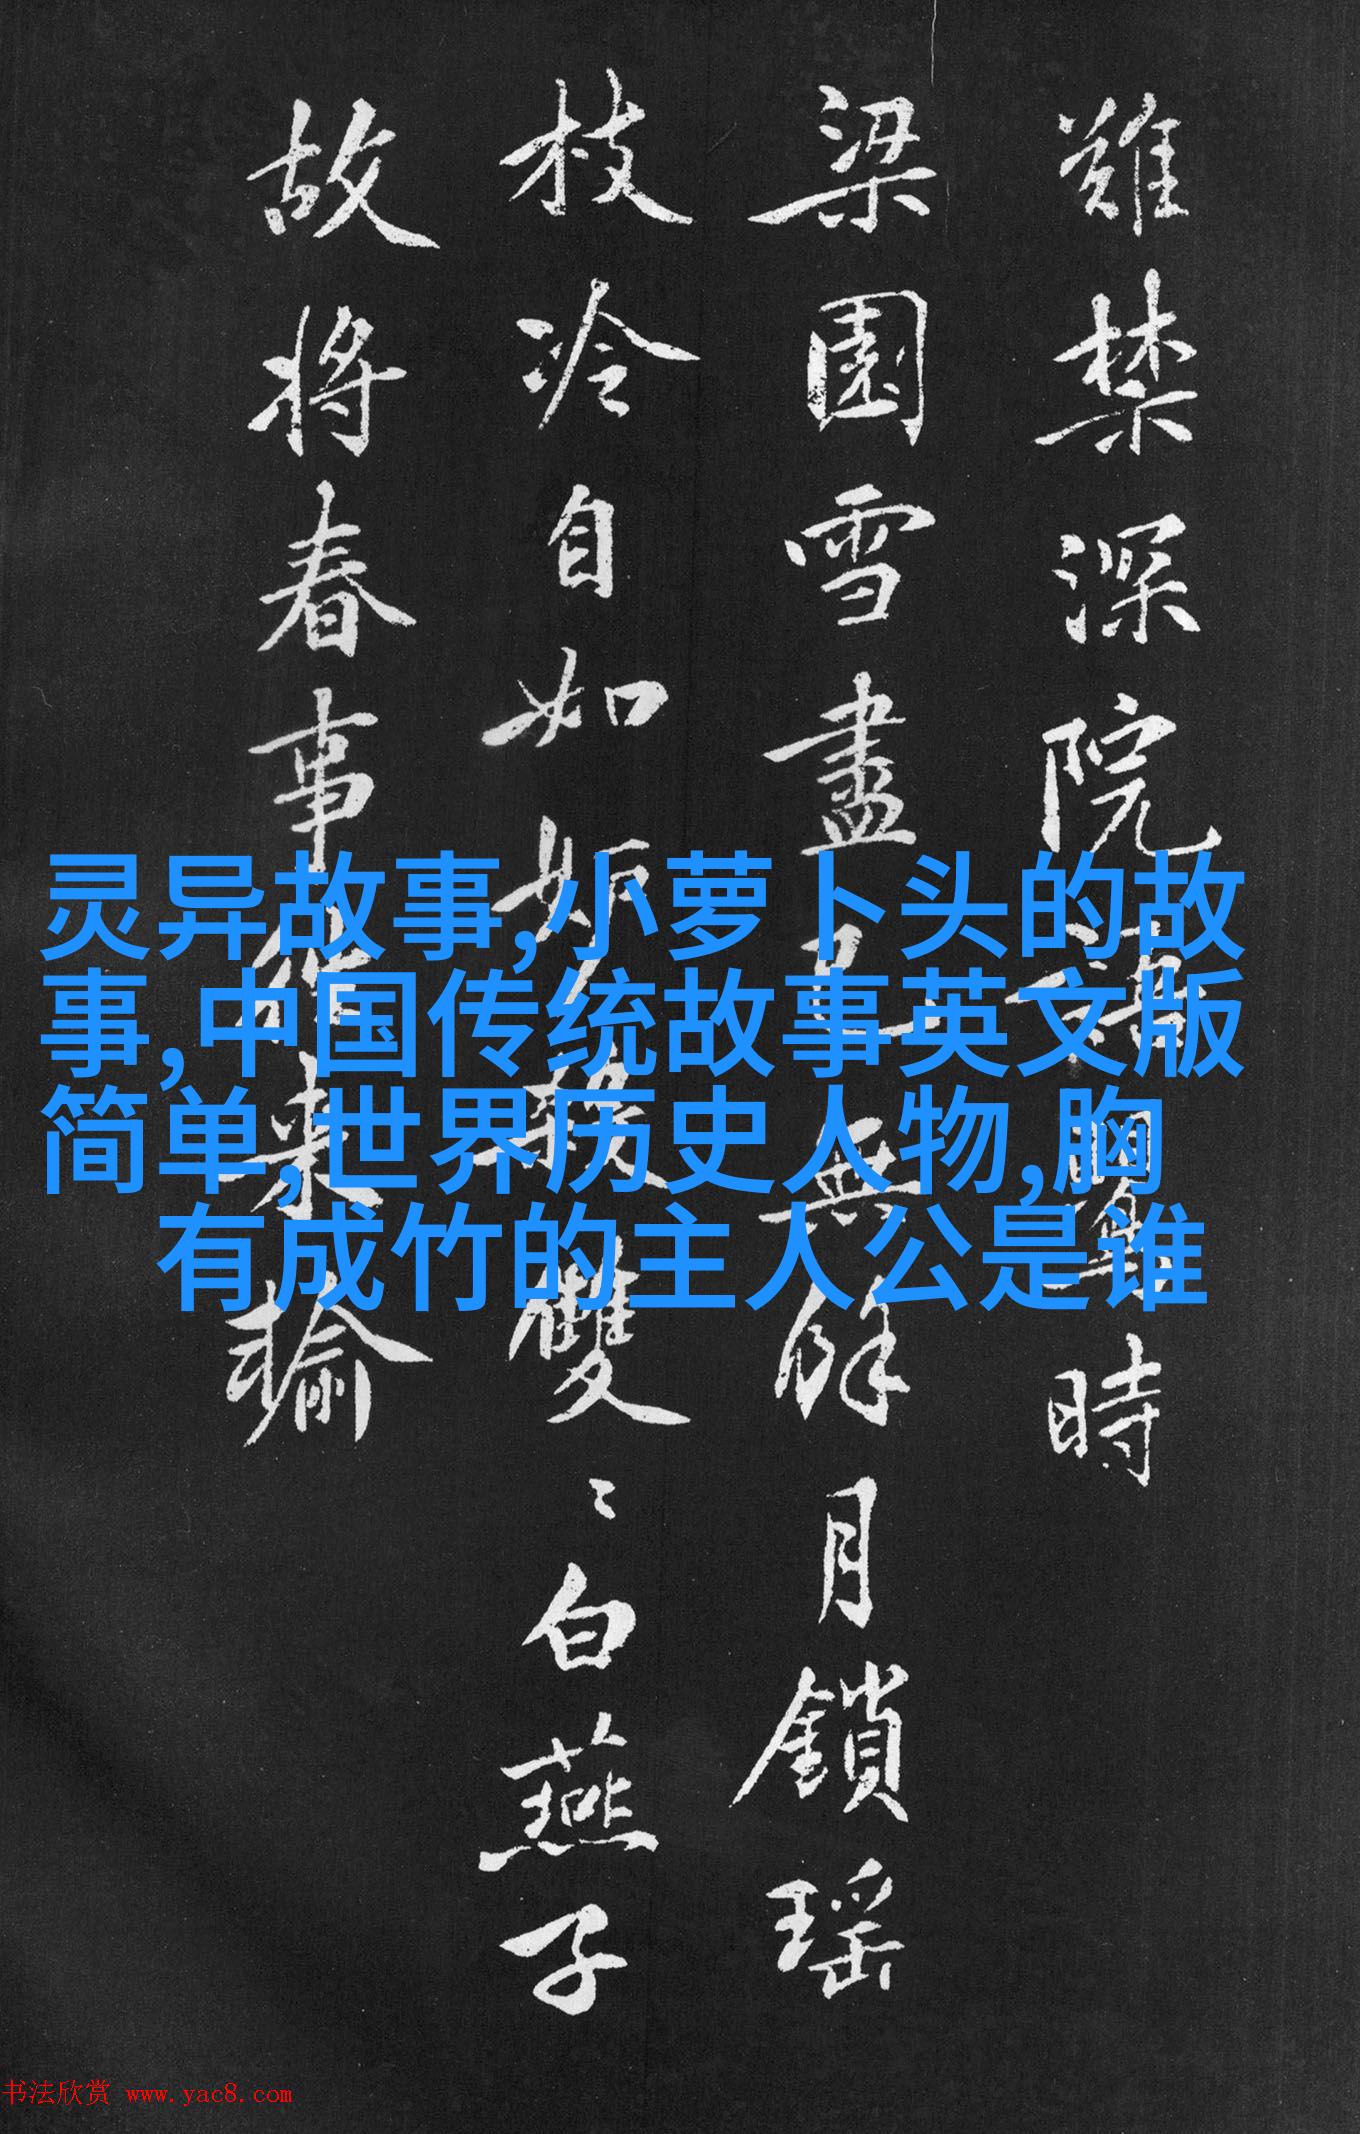 難禁深院時
梁園雪盡無餘月鎖瑤
枝冷自如雙〻白燕子
故將春事來輸
灵异故事,小萝卜头的故
事,中国传统故事英文版
简单,世界历史人物,胸
有成竹的主人公是谁
书法欣赏 www.yac8.com